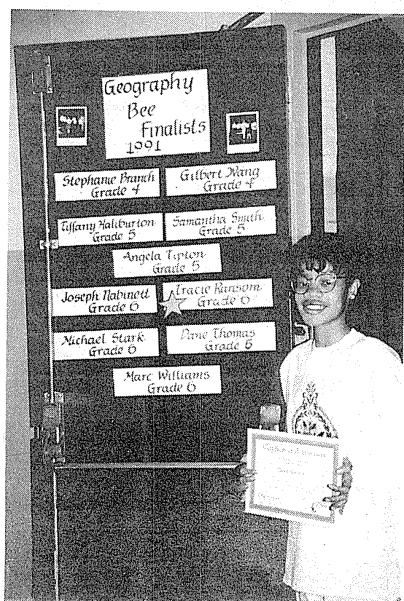 Geography
Bee
Finalists
1991
Stephanie Branch
Grade 4
Gilbert Wang
Grade 4
Tiffany Haliburton
Grade 5
Samantha Smith
Grade 5
Angela Tipton
Grade 5
Joseph Nabinett
Grade 6
Tracie Ransom
Grade 6
Michael Stark
Grade 6
Dane Thomas
Grade 6
Marc Williams
Grade 6